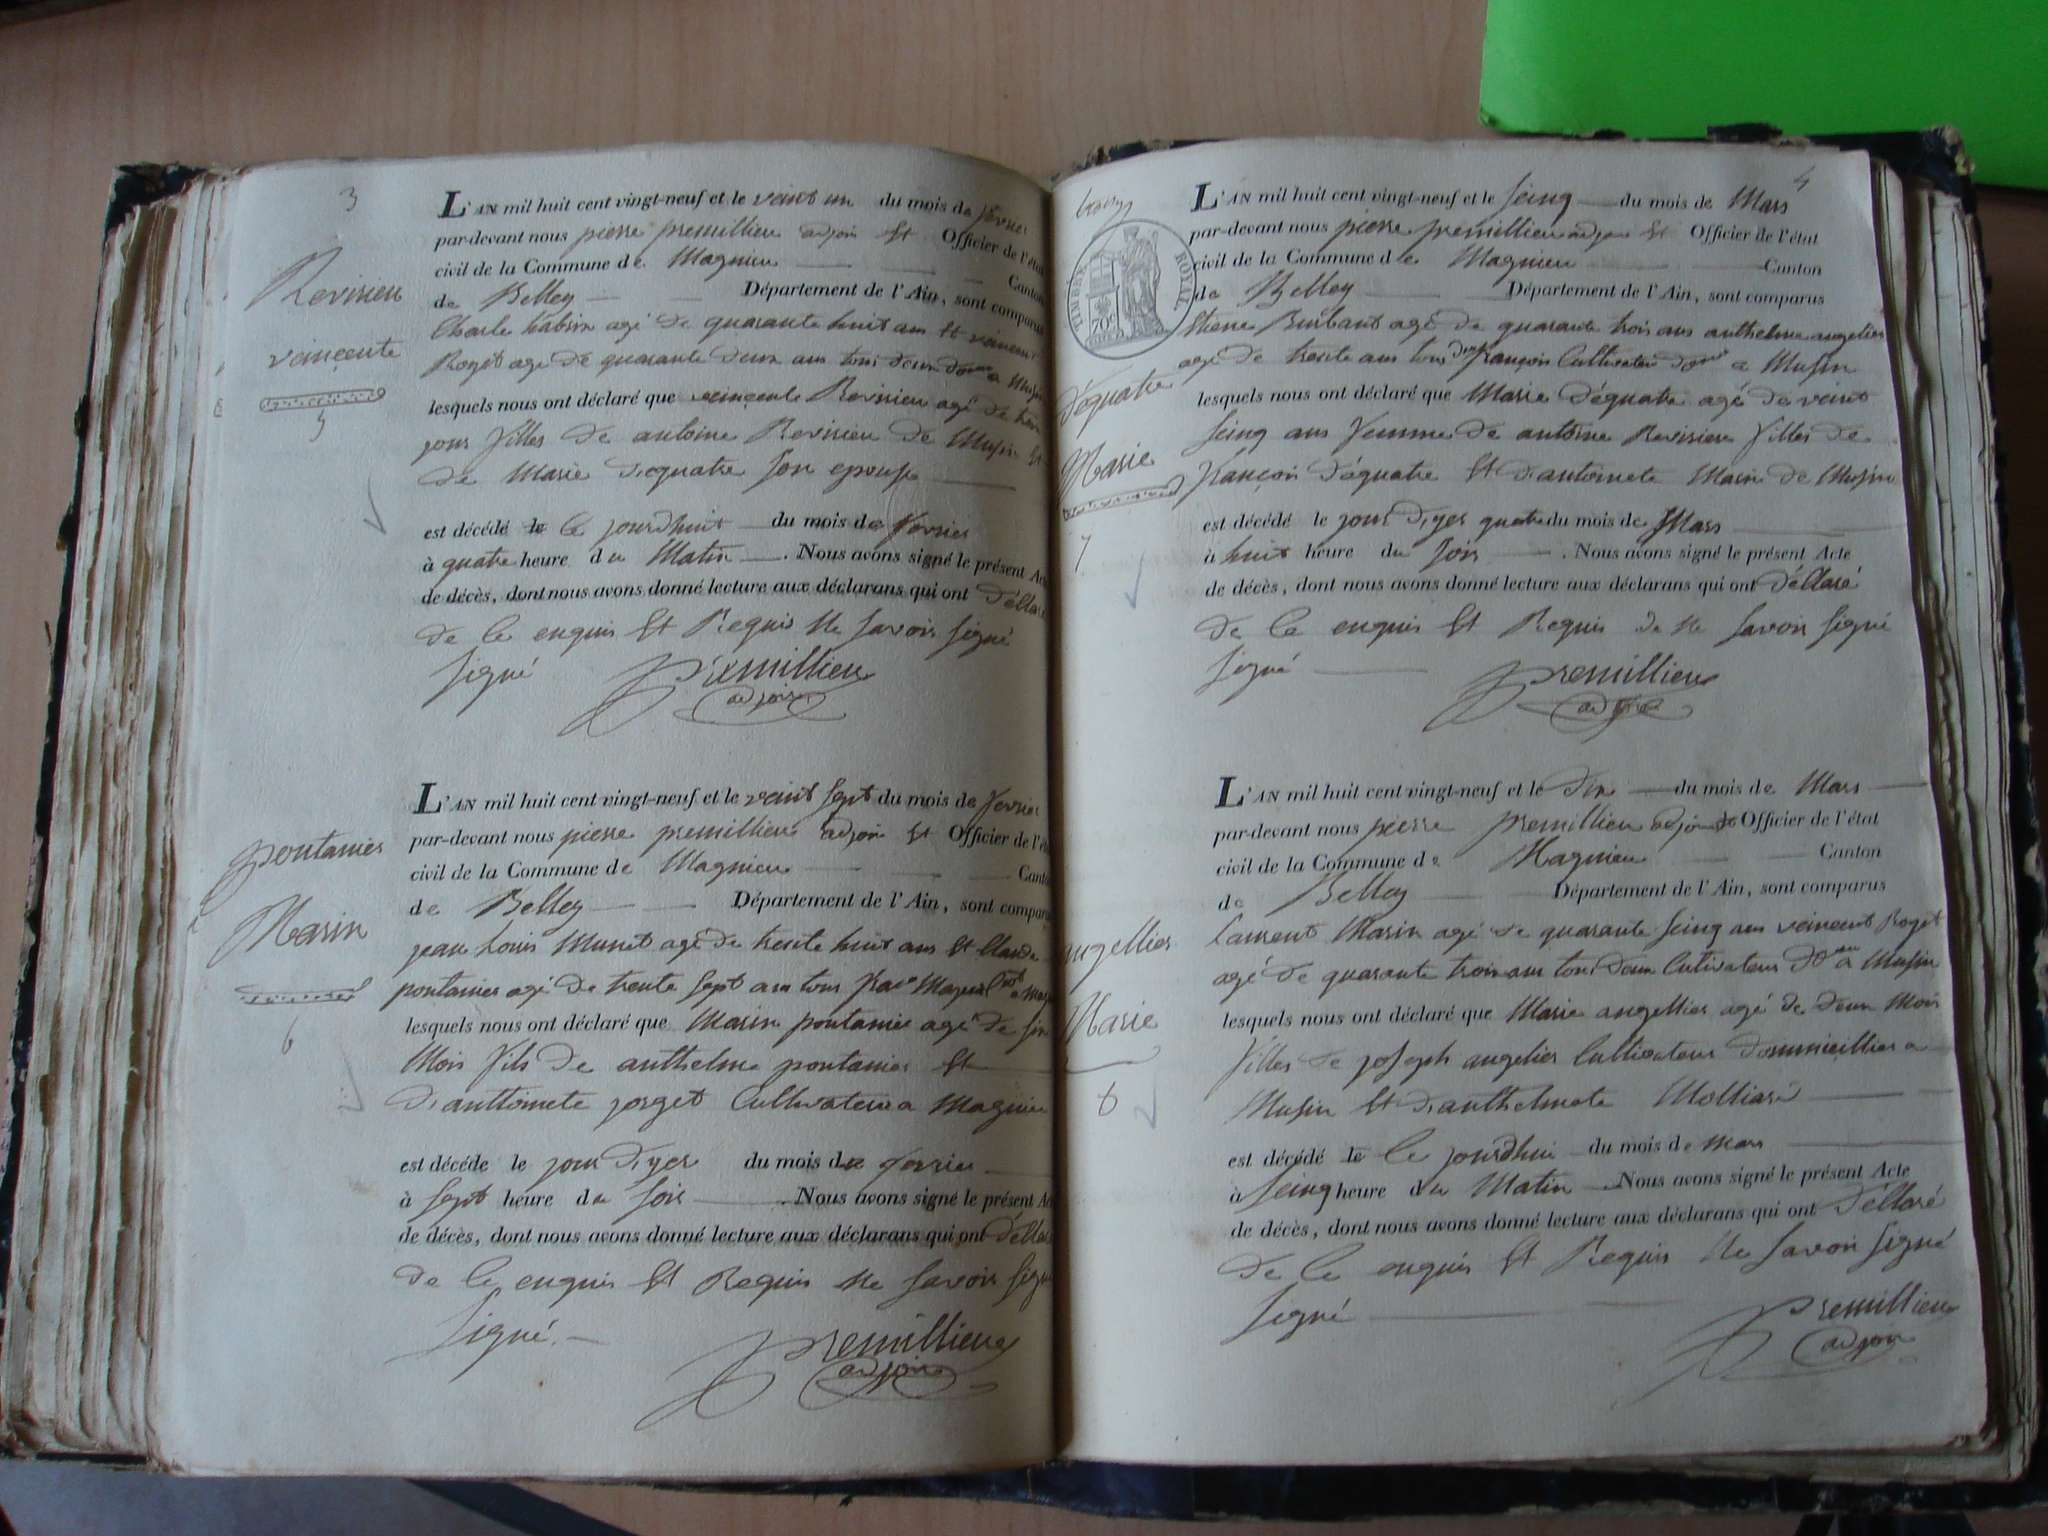 3
Revirieu
veinçente
5
L'AN mil huit cent vingt-neuf et le veint un du mois de fevrier
par-devant nous pierre premillieu adjoin et Officier de l'état
civil de la Commune de Magnieu Canton
de Belley Département de l'Ain, sont comparus
Charle agé de quarante huit ans et veincent
Roget agé de quarante deux ans tous deux a
lesquels nous ont déclaré que veinçente Revirieu agé de
jour filles de antoine Revirieu de Musin et
de Marie dequatre son epouse
est décédé le ce jourdhuit du mois de fevrier
à quatre heure du Matin . Nous avons signé le présent Acte
de décès, dont nous avons donné lecture aux déclarans qui ont déllaré
de ce enquis et Requis ne savoir signé
signé Premillieu
adjoin
pontanier
Marin
6
L'AN mil huit cent vingt-neuf et le veint sept du mois de fevrier
par-devant nous pierre premillieu adjoin et Officier de l'état
civil de la Commune de Magnieu Canton
de Belley Département de l'Ain, sont comparus
jean Louis Munet agé de trente huit ans et Claude
pontanier agé de trente sept ans tous
lesquels nous ont déclaré que Marin pontanier agé de six
Mois fils de anthelme pontanier et
d'anttomete jorget Cultivateur a Magnieu
est décédé le jour d'yer du mois de fevrier
à sept heure du soir . Nous avons signé le présent Acte
de décès, dont nous avons donné lecture aux déclarans qui ont déllaré
de ce enquis et Requis ne savoir signé
signé.
Premillieu
adjoin
4
TIMBRE ROYAL
70c
déquatre
Marie
7
L'AN mil huit cent vingt-neuf et le seinq du mois de Mars
par-devant nous pierre premillieu adjoin et Officier de l'état
civil de la Commune de Magnieu Canton
de Belley Département de l'Ain, sont comparus
Etiene Burbant agé de quarante trois ans anthelme angelier
agé de trente ans tous deux françois Cultivateur a Musin
lesquels nous ont déclaré que Marie déquatre agé de veint
seinq ans femme de antoine Revirieu filles de
françois déquatre et d'antoinete Marin de Musin
est décédé le jour d'yer quatre du mois de Mars
à huit heure du soir . Nous avons signé le présent Acte
de décès, dont nous avons donné lecture aux déclarans qui ont déllaré
de ce enquis et Requis de ne savoir signé
signé Premillieu
angellier
Marie
8
L'AN mil huit cent vingt-neuf et le dix du mois de Mars
par-devant nous pierre premillieu adjoin et Officier de l'état
civil de la Commune de Magnieu Canton
de Belley Département de l'Ain, sont comparus
Laurent Marin agé de quarante seinq ans veincent Roget
agé de quarante trois ans tous deux Cultivateur a Musin
lesquels nous ont déclaré que Marie angellier agé de deux Mois
filles de joseph angelier Cultivateur dommicillier a
Musin et d'anthelmete Molliard
est décédé le ce jourdhui du mois de mars
à seinq heure du Matin . Nous avons signé le présent Acte
de décès, dont nous avons donné lecture aux déclarans qui ont déllaré
de ce enquis et Requis ne savoir signé
signé
Premillieu
adjoin